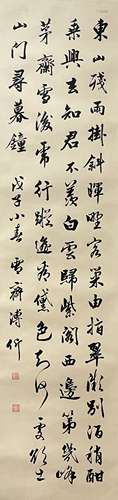 東山殘雨掛斜暉野客巢由指翠微別酒稍酣
乘興去知君不羨白雲歸紫閣西邊第幾峰
茅齋雪後虎行蹤遙看黛色知何處欲出
山門尋暮鐘 戊子小春 雪齋溥伒